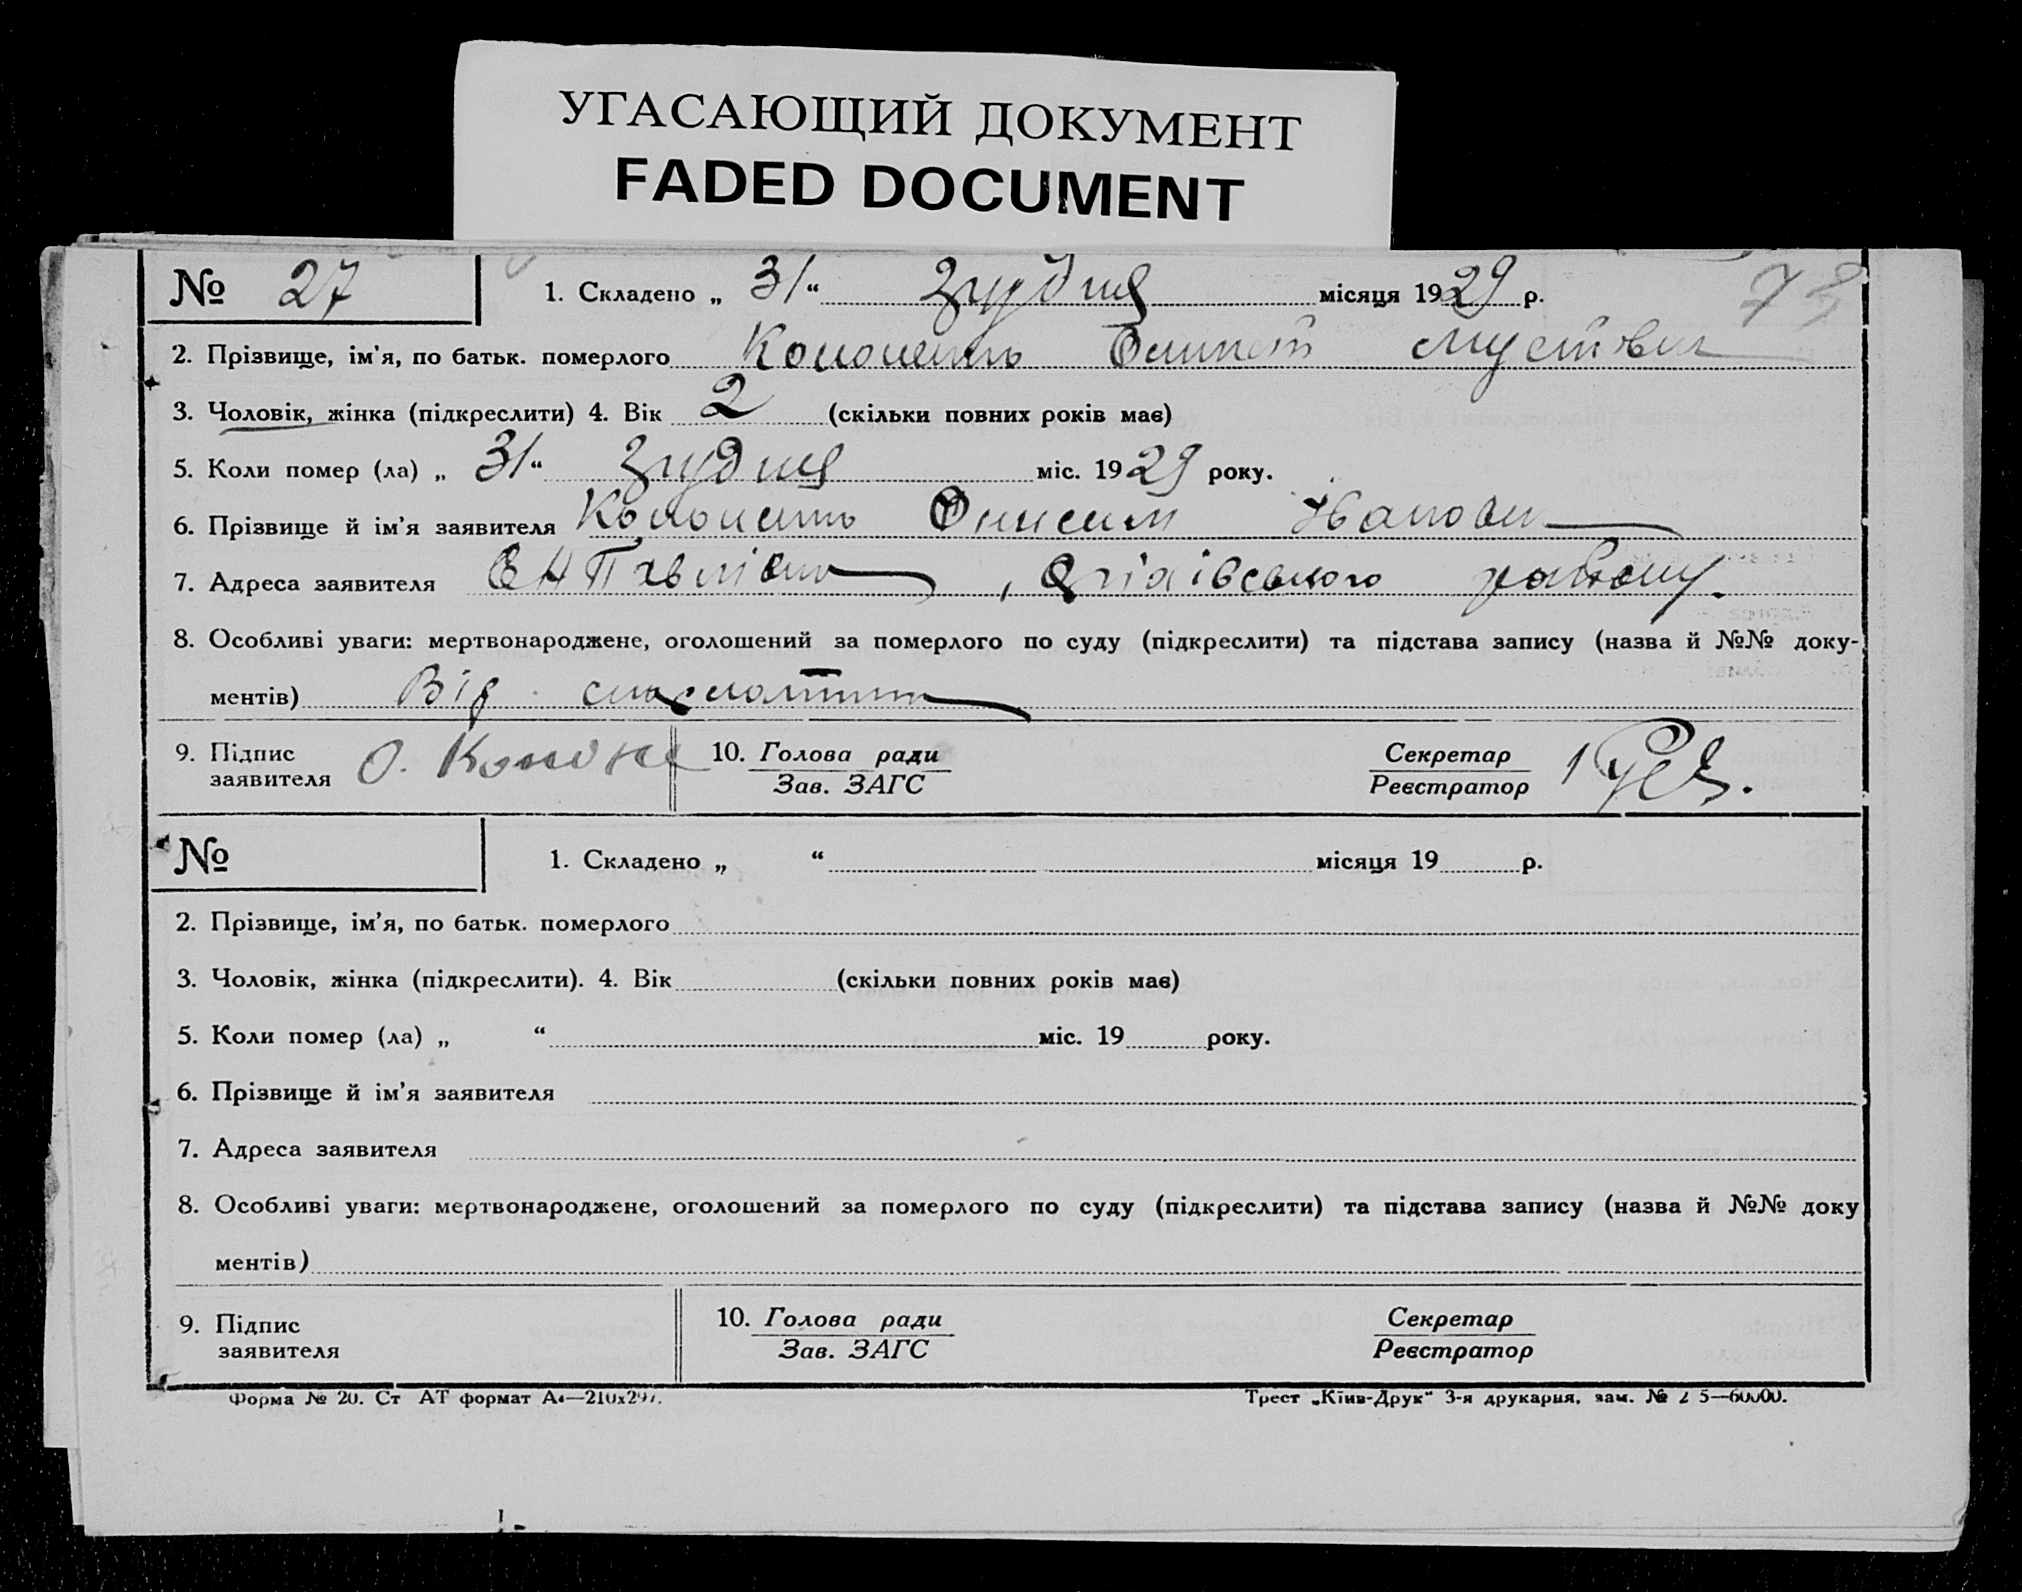 УГАСАЮЩИЙ ДОКУМЕНТ
FADED DOCUMENT
№ 27
1. Складено „ 31 “ грудня місяця 1929 р.
78
2. Прізвище, ім'я, по батьк. померлого Кононенко
3. Чоловік, жінка (підкреслити) 4. Вік 2 (скільки повних років має)
5. Коли помер (ла) „ 31 “ грудня міс. 1929 року.
6. Прізвище й ім'я заявителя Кононенко Онисим Іванович
7. Адреса заявителя району.
8. Особливі уваги: мертвонароджене, оголошений за померлого по суду (підкреслити) та підстава запису (назва й №№ доку-
ментів) Від
9. Підпис заявителя О. Кононе
10. Голова ради
Зав. ЗАГС
Секретар
Реєстратор
№
1. Складено „ “ місяця 19 р.
2. Прізвище, ім'я, по батьк. померлого
3. Чоловік, жінка (підкреслити). 4. Вік (скільки повних років має)
5. Коли помер (ла) „ “ міс. 19 року.
6. Прізвище й ім'я заявителя
7. Адреса заявителя
8. Особливі уваги: мертвонароджене, оголошений за померлого по суду (підкреслити) та підстава запису (назва й №№ доку
ментів)
9. Підпис заявителя
10. Голова ради
Зав. ЗАГС
Секретар
Реєстратор
Форма № 20. Ст АТ формат А4—210х297.
Трест „Київ-Друк“ 3-я друкарня, зам. № 2 5—60000.